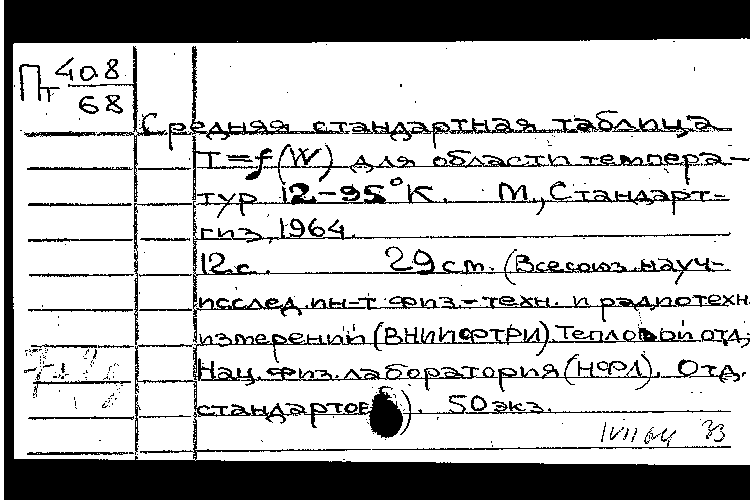 Пт 408
68
Средняя стандартная таблица
T=f(W) для области темпера-
тур 12-95°К. М., Стандарт-
гиз, 1964.
12 с. 29 см. (Всесоюз. науч-
исслед. ин-т физ.-техн. и радиотехн.
измерений (ВНИИФТРИ). Тепловой отд;
Нац. физ. лаборатория (НФЛ). Отд.
стандартов). 50 экз.
33